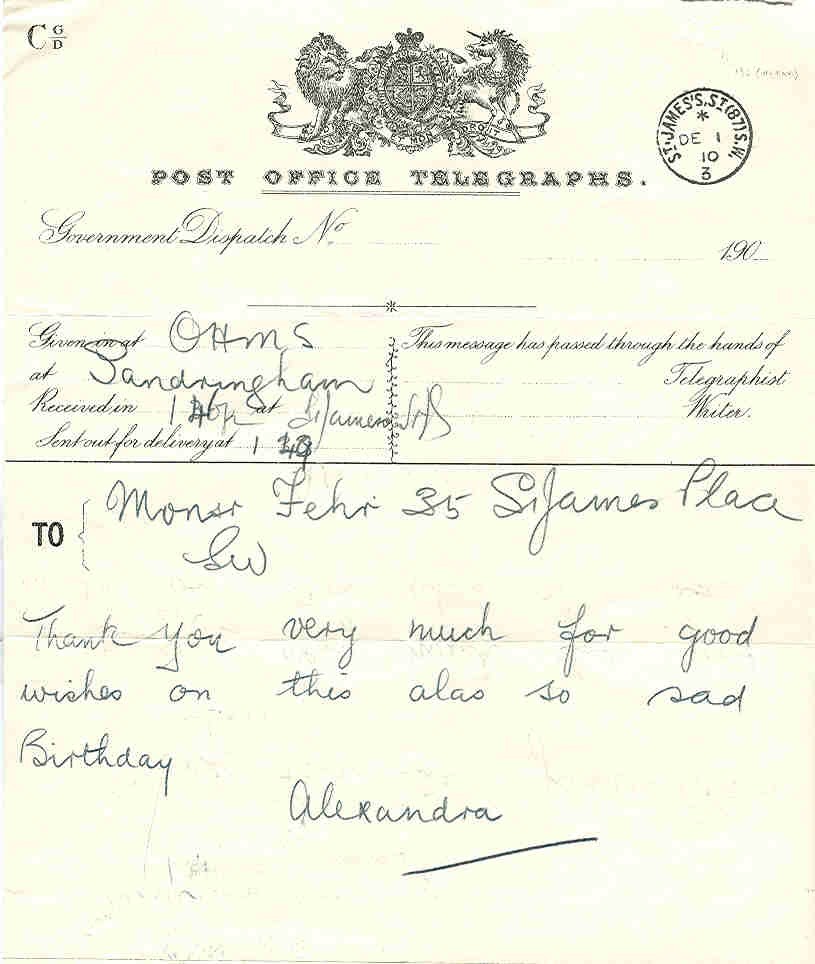 C G/D
ST. JAMES'S. ST (87) S.W.
*
DE 1
10
3
POST OFFICE TELEGRAPHS.
Government Dispatch No
190
Given in at OHMS
at Sandringham
Received in 1 at St James St
Sent out for delivery at 1
This message has passed through the hands of
Telegraphist
Writer.
TO Monsr Fehr 35 St James Place
SW
Thank you very much for good
wishes on this alas so sad
Birthday
Alexandra